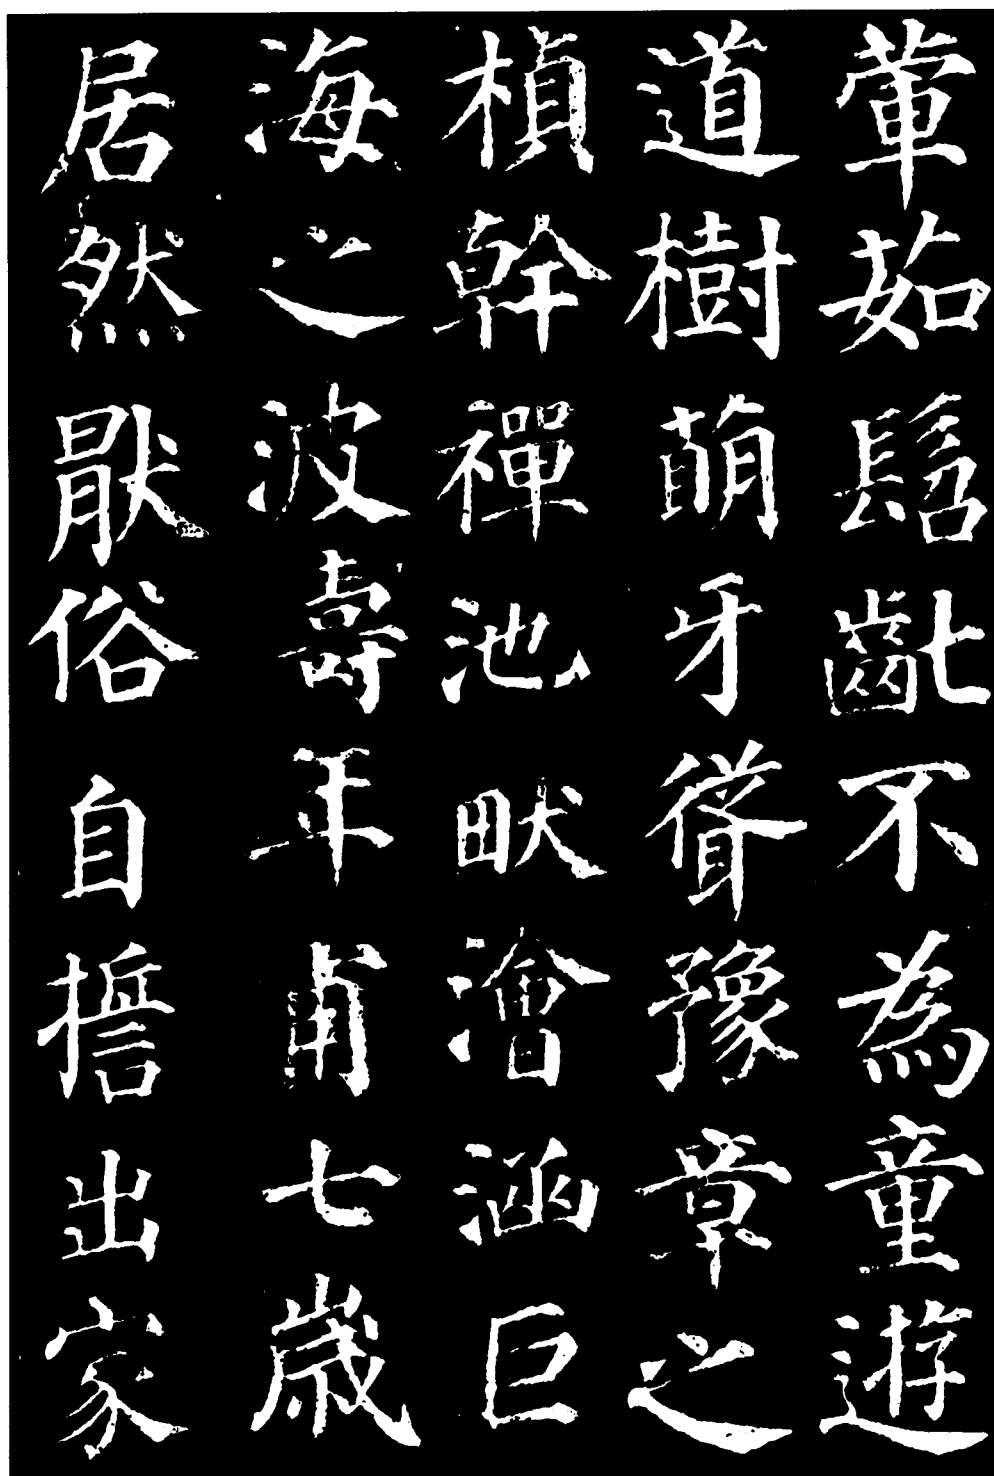 葷茹髫齓不為童遊
道樹萌牙聳豫章之
楨幹禪池畎澮涵巨
海之波壽年甫七歲
居然厭俗自誓出家